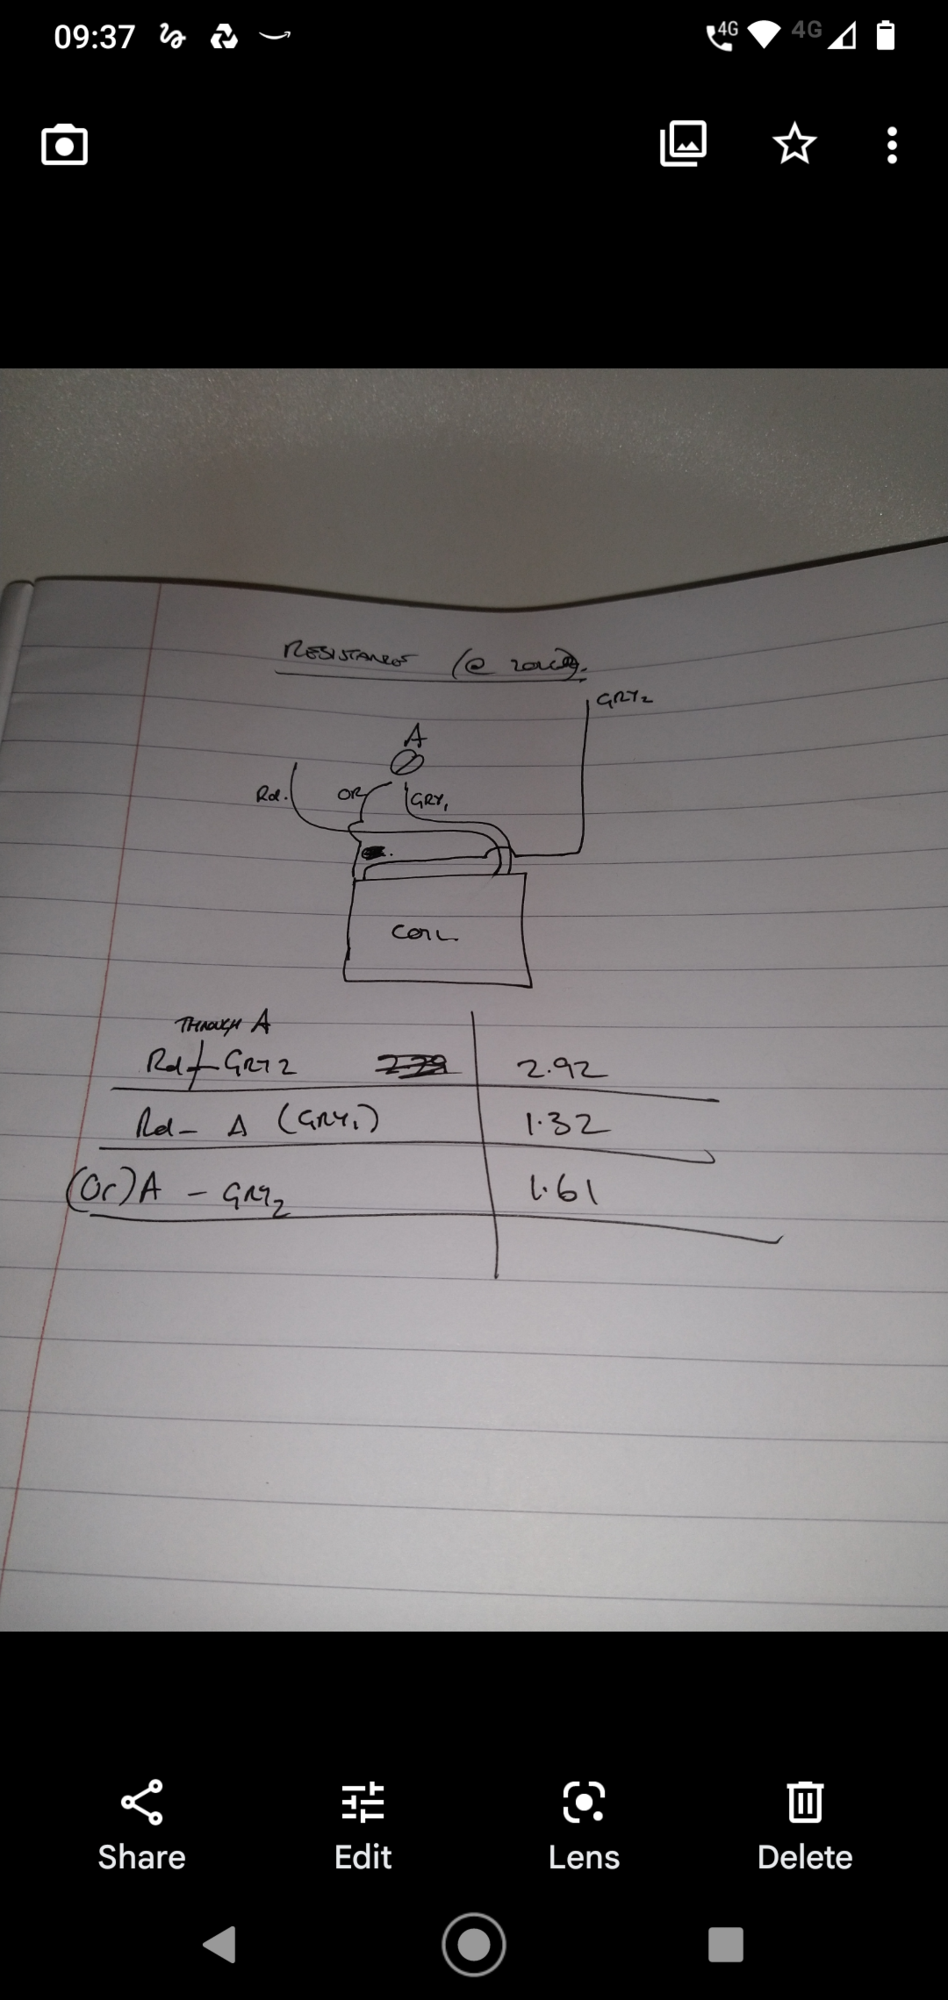 09:37
4G 4G
RESISTANCES (@
GRY2
A
Rd. OR GRY1
COIL
THROUGH A
Rd - GRY2 2.92
Rd - A (GRY1) 1.32
(Or) A - GRY2 1.61
Share Edit Lens Delete